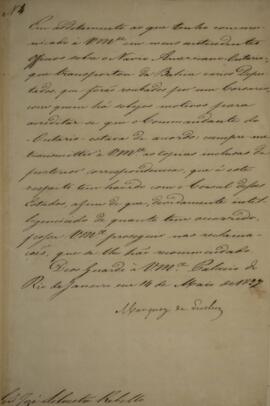 Em additamento ao que tenho commu-
nicado à VMce em meus antecedentes
Officios sobre o Navio Americano Ontario,
que transportou da Bahia varios Depu-
tados, que forão roubados por um Corsario,
com quem há sobejos motivos para
acreditar se que o Commandante do
Ontario estava de acordo; cumpre me
transmettir à VMce as copias inclusas da
posterior correspondencia, que á este
respeito tem havido com o Consul desses
Estados, afim de que, devidamente intel-
ligenciado de quanto tem occorrido,
possa VMce proseguir nas reclama-
ções, que se lhe hão recommendado.
Deos Guarde à VMce Palacio do
Rio de Janeiro em 14 de Maio de 1827
Marquez de Queluz
Snr José Silvestre Rebello